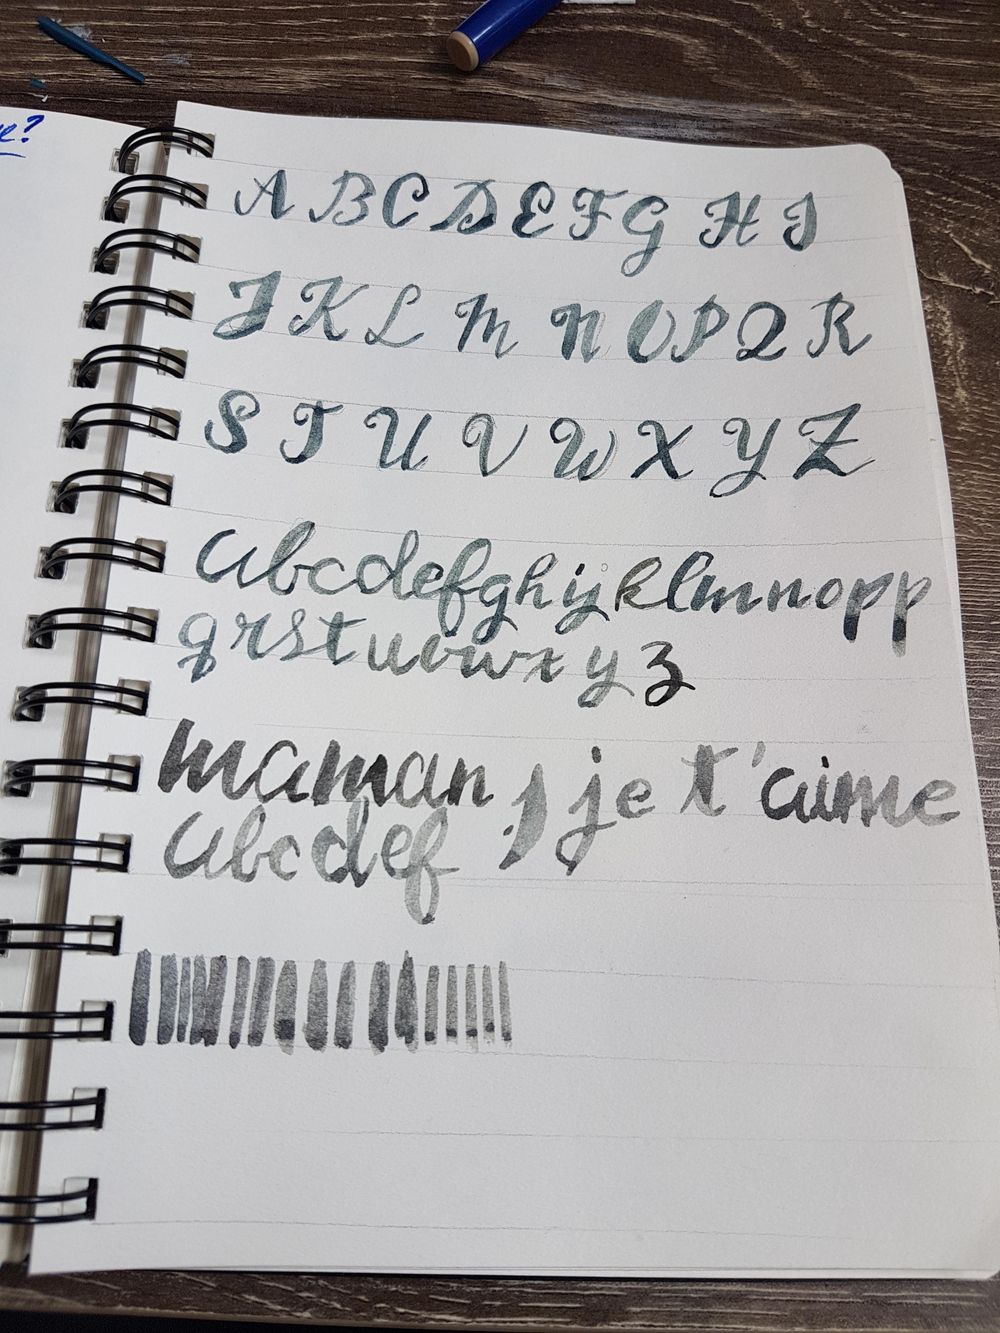 A B C D E F G H I
J K L M N O P Q R
S T U V W X Y Z
abcdefghijklmnopp
qrstuvwxyz
maman, je t'aime
abcdef